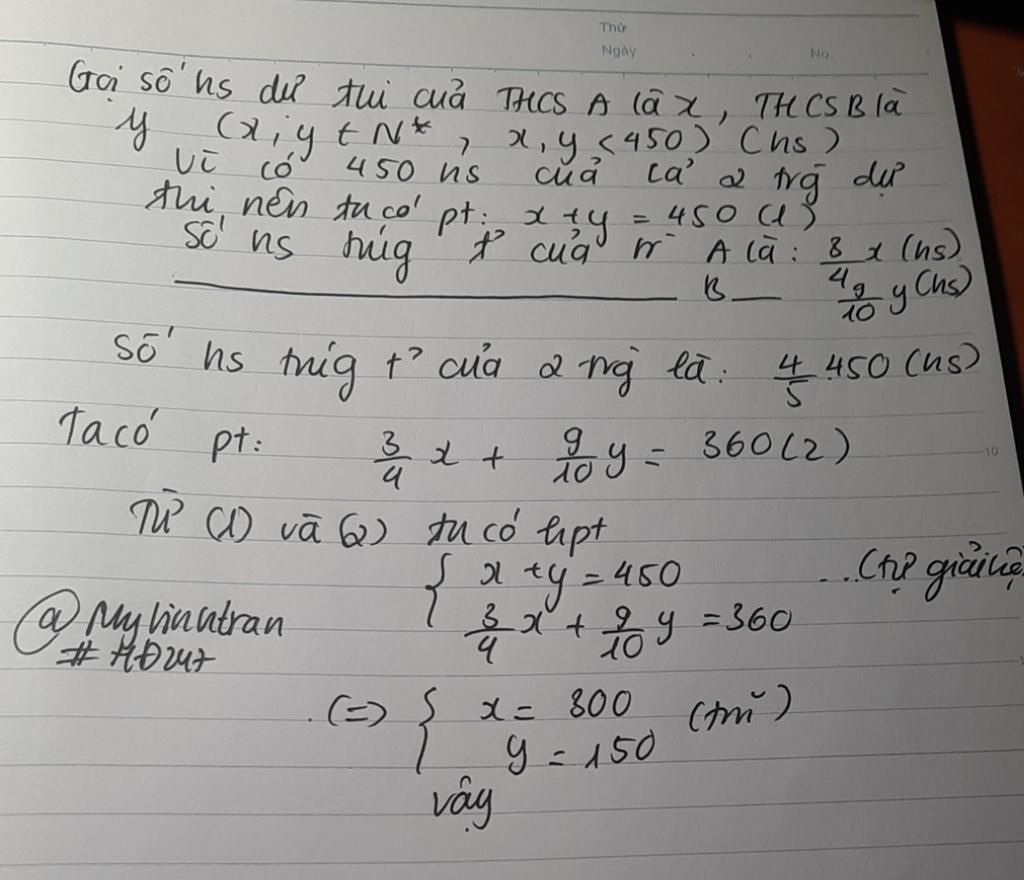 Thứ
Ngày
No
Gọi số hs dự thi của THCS A là x, THCS B là
y (x; y ∈ N*, x, y < 450) (hs)
Vì có 450 hs của cả 2 trg dự
thi nên ta có pt: x + y = 450 (1)
Số hs trúg t² của tr A là: 3/4 x (hs)
B 9/10 y (hs)
Số hs trúg t² của 2 trg là: 4/5 450 (hs)
Ta có pt: 3/4 x + 9/10 y = 360 (2)
10
Từ (1) và (2) ta có hpt
{ x + y = 450 ...(tự giải hệ
3/4 x + 9/10 y = 360
@Mylinhtran
#HĐ247
(=) { x = 300 (tm)
y = 150
Vậy